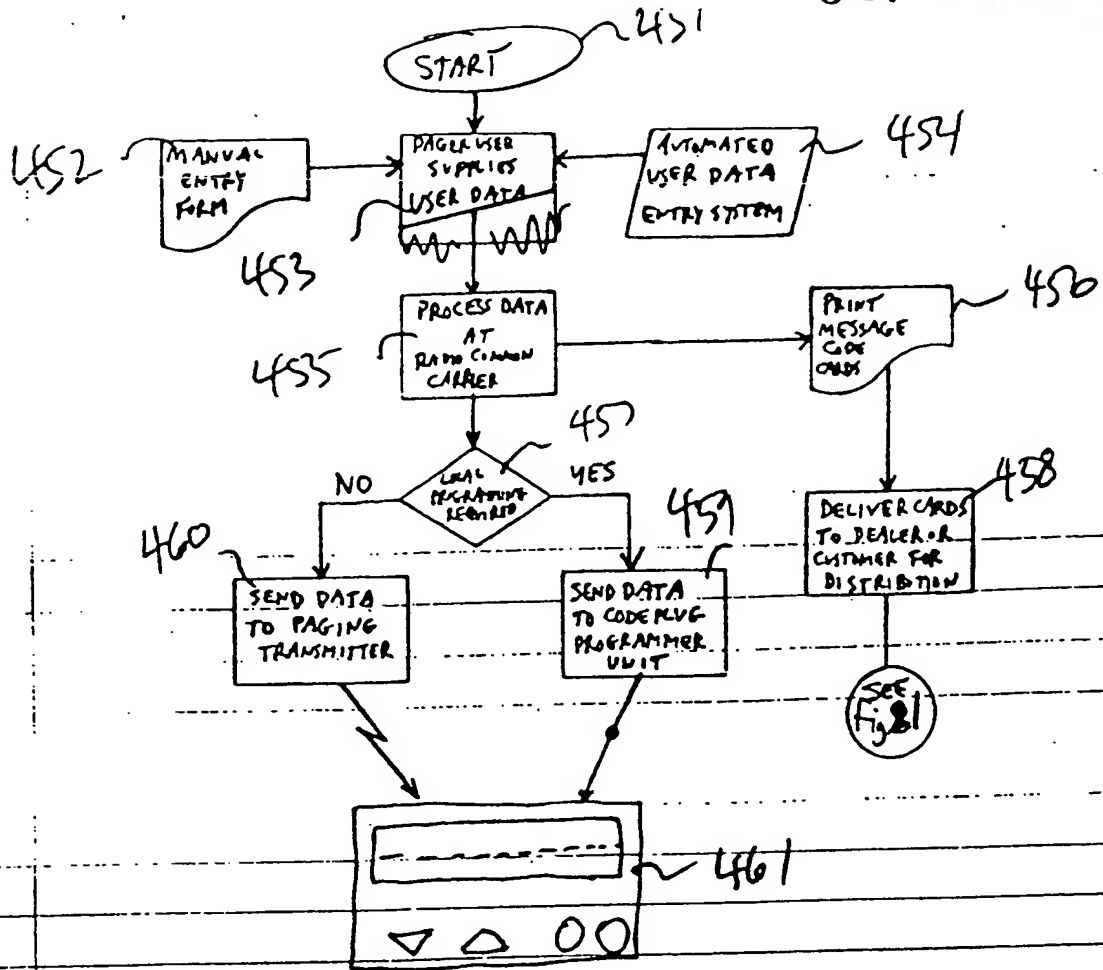 451
START
452
MANUAL
ENTRY
FORM
PAGER USER
SUPPLIES
USER DATA
AUTOMATED
USER DATA
ENTRY SYSTEM
454
453
PROCESS DATA
AT
RADIO COMMON
CARRIER
455
PRINT
MESSAGE
CODE
CARDS
456
457
NO
LOCAL
PROGRAMMING
REQUIRED
YES
460
SEND DATA
TO PAGING
TRANSMITTER
459
SEND DATA
TO CODEPLUG
PROGRAMMER
UNIT
458
DELIVER CARDS
TO DEALER OR
CUSTOMER FOR
DISTRIBUTION
SEE
Fig
461